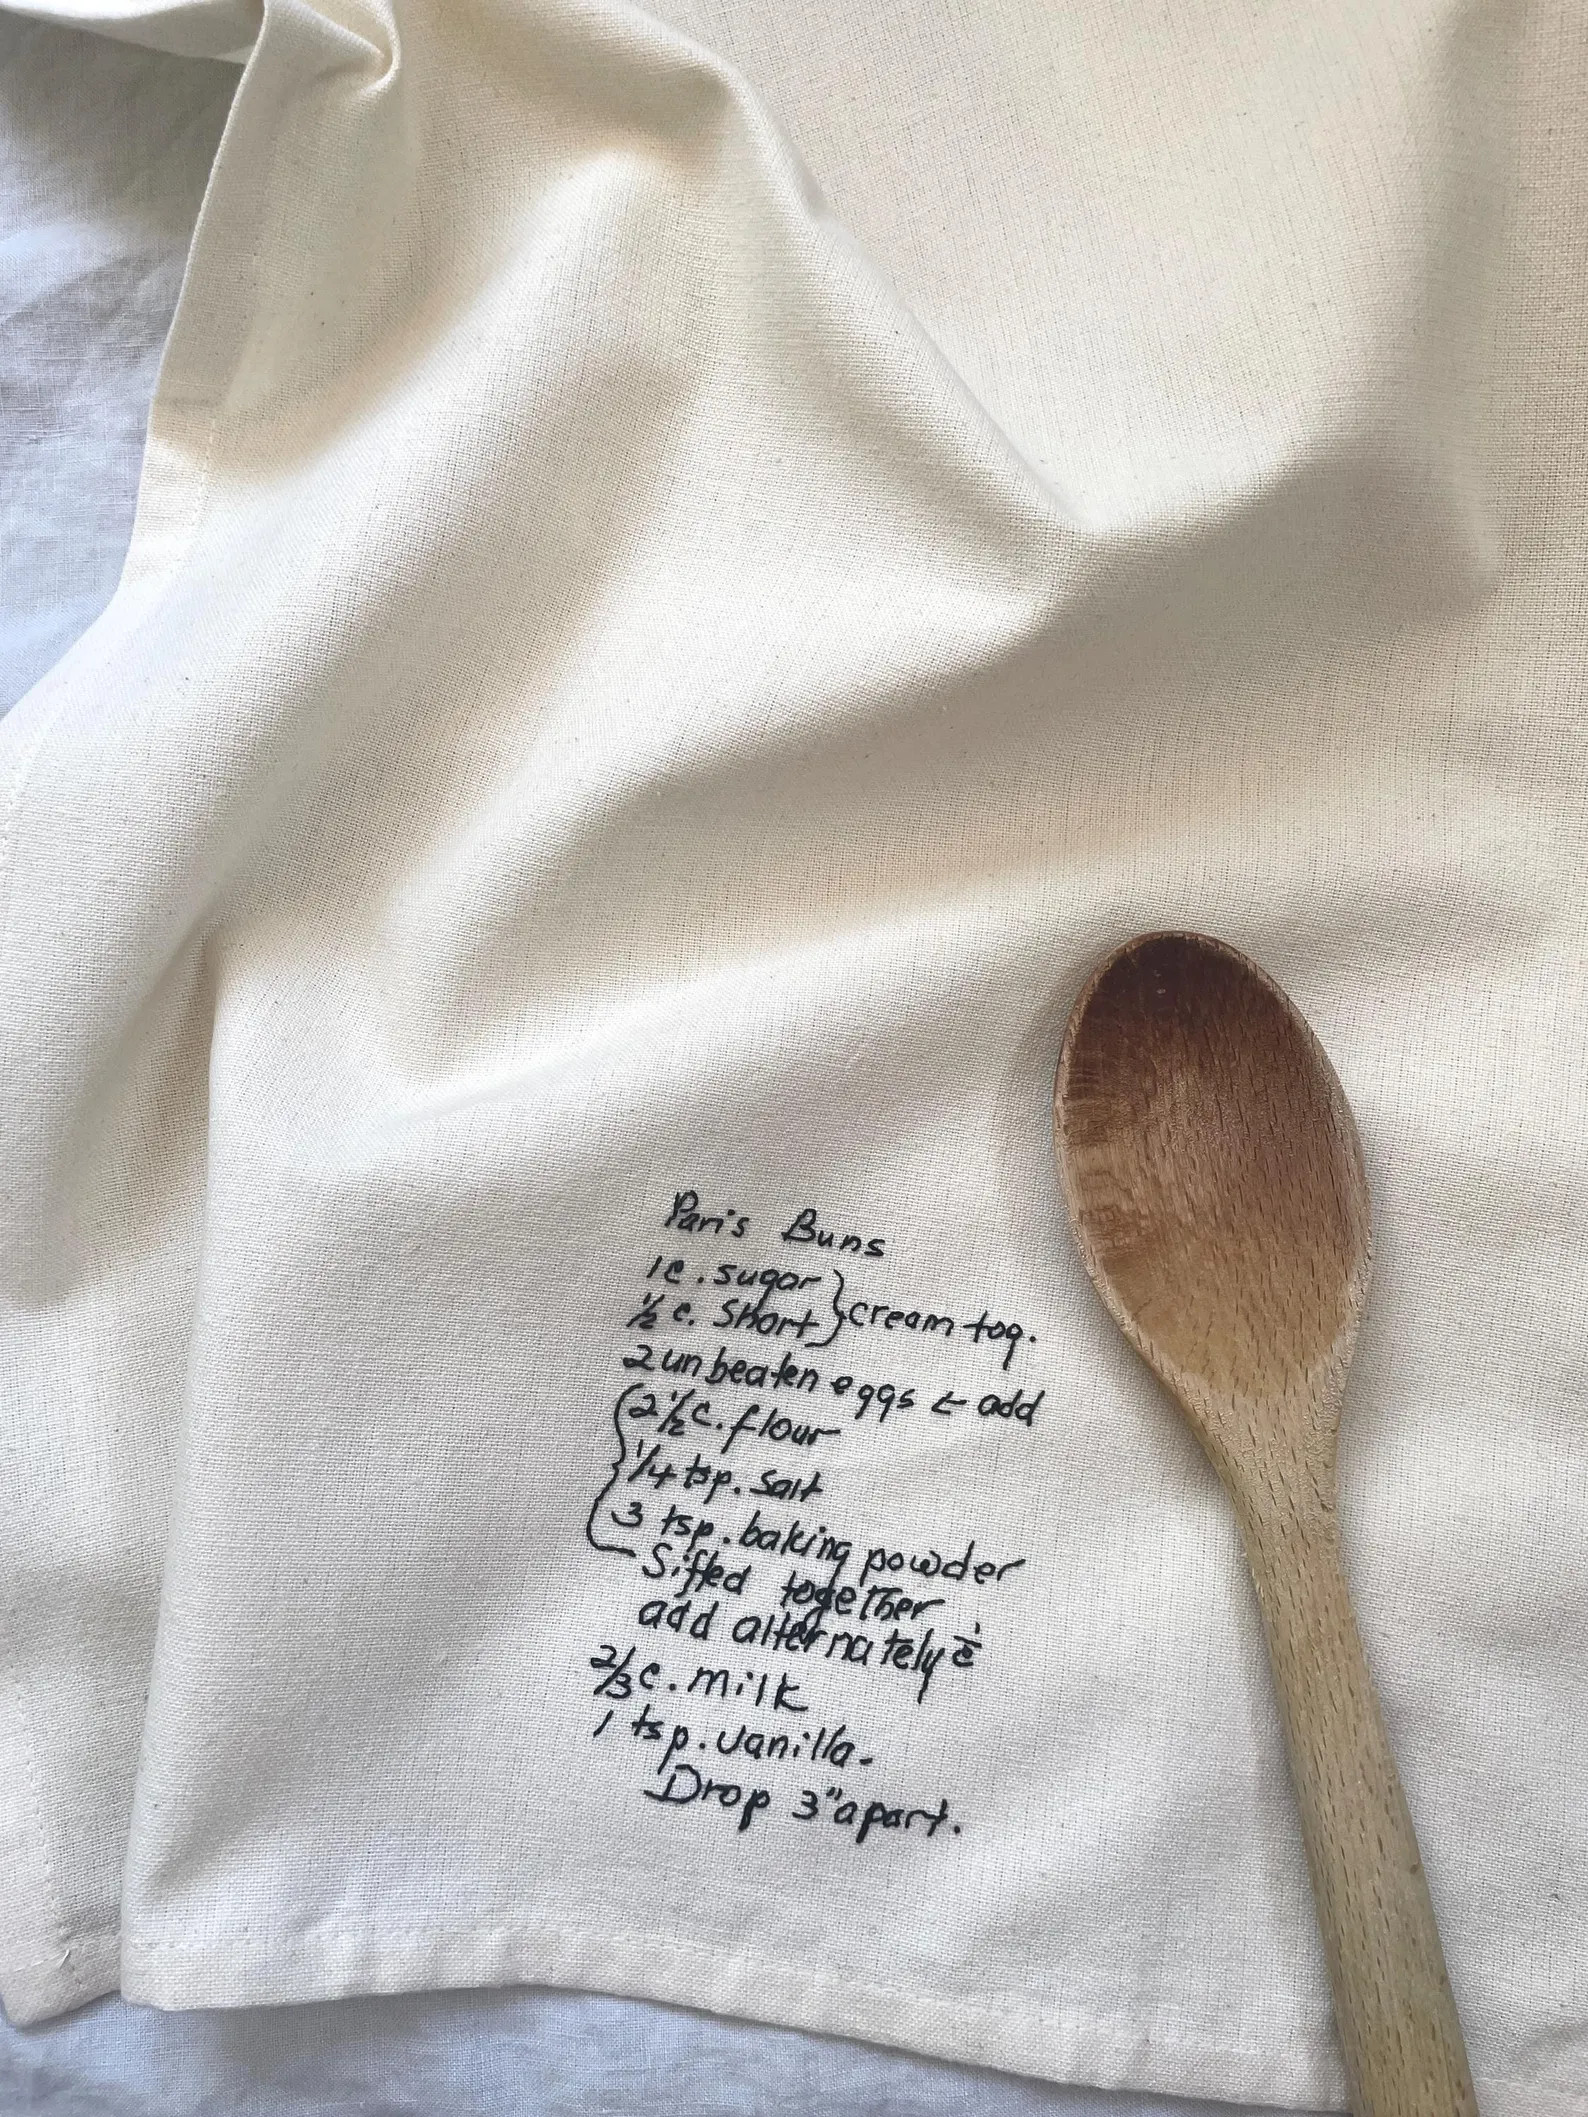 Paris Buns
1 c. sugar } cream tog.
½ c. Short
2 unbeaten eggs ← add
{ 2½ c. flour
¼ tsp. salt
3 tsp. baking powder
Sifted together
add alternately c̄
⅔ c. milk
1 tsp. vanilla.
Drop 3" apart.